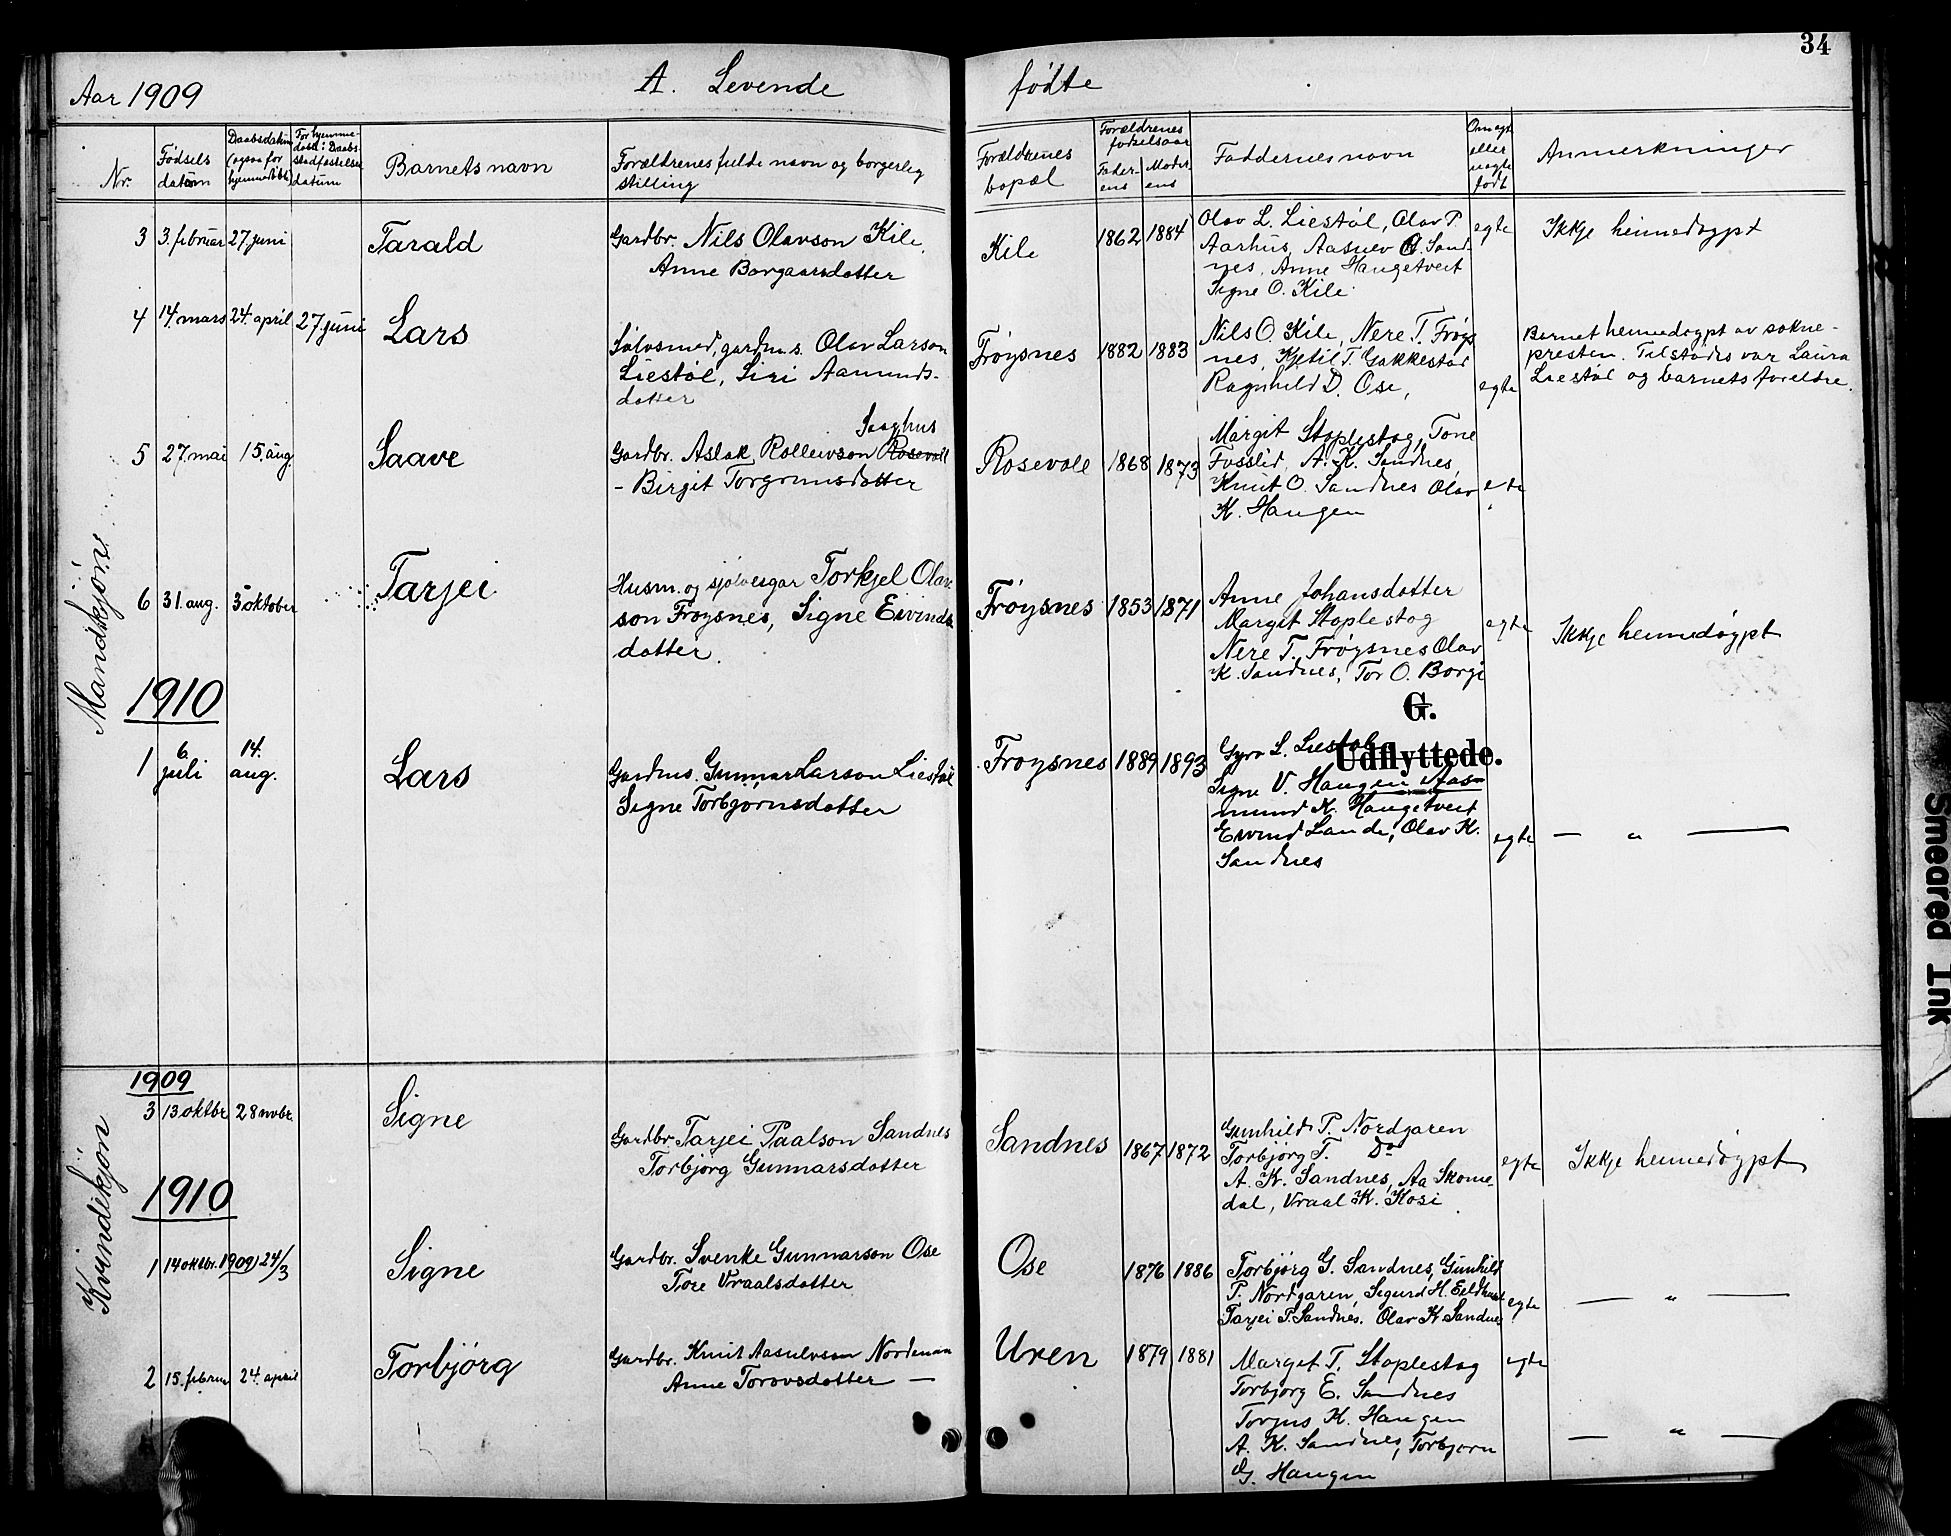 34
Aar 1909
A. Levende fødte
Nr.
Fødsels datum
Daabsdatum (ogsaa for hjemmedøbt)
For hjemmedøbt: Daabsstadfæstelses datum
Barnets navn
Forældrenes fulde navn og borgerlig stilling
Forældrenes bopæl
Forældrenes fødselsaar
Faderens
Moderens
Faddernes navn
Om egte eller uegte født
Anmerkninger
Mandkjøn
3 3. februar 27. juni
Tarald
Gardbr. Nils Olavson Kile,
Anne Borgaarsdotter
Kile 1862 1884
Olav L. Liestøl, Olav P.
Aarhus, Aasnev G Sand-
nes, Anne Haugetveit
Signe O. Kile
egte
Ikkje heimedøypt
4 14. mars 24. april 27. juni
Lars
Sølvsmed, gardm.s. Olav Larson
Liestøl, Siri Aamunds-
dotter
Frøysnes 1882 1883
Nils O. Kile, Nere T. Frøys
nes, Kjetil T. Gakkestad
Ragnhild D. Ose,
egte
Barnet heimedøypt av sokne-
presten. Tilstades var Laura
Liestøl og barnets foreldre.
5 27. mai 15. aug.
Saave
Saghus
Gardbr. Aslak Rolleivson Rosevoll
- Birgit Torgrimsdotter
Rosevoll 1868 1873
Margit Stoplestog, Tone
Fosslid, A. K. Sandnes,
Knut O. Sandnes Olav
K. Haugen
egte
6 31. aug. 3 oktober
Tarjei
Husm. og sjølveigar Torkjel Olav-
son Frøysnes, Signe Eivinds
dotter.
Frøysnes 1853 1871
Anne Johansdotter
Margit Stoplestog
Nere T. Frøysnes Olav
K. Sandnes, Tor O. Borgi
egte
Ikkje heimedøypt
1910
G.
Udflyttede.
1 6 juli 14. aug.
Lars
Gardm.s. Gunnar Larson Liestøl
Signe Torbjørnsdotter
Frøysnes 1889 1893
Gyro L. Liestøl
Signe V. Haugen Aas-
mund K. Haugetveit
Eivind Lande, Olav K.
Sandnes
egte
— " —
Kvindekjøn
1909
3 13 oktbr 28 novbr.
Signe
Gardbr Tarjei Paalson Sandnes
Torbjørg Gunnarsdotter
Sandnes 1867 1872
Gunhild P. Nordgaren
Torbjørg T. Do
A. K. Sandnes, Aa Skome-
dal, Vraal K. Kosi
egte
Ikkje heimedøypt
1910
1 14 oktbr. 1909 24/3
Signe
Gardbr. Svenke Gunnarson Ose
Tore Vraalsdotter
Ose 1876 1886
Torbjørg G. Sandnes, Gunhild
P. Nordgaren, Sigurd H.
Tarjei P. Sandnes. Olav K Sandnes
egte
— " —
2 15. februar 24. april
Torbjørg
Gardbr. Knut Aasulvson Nordenaa
Anne Torovsdotter —
Uren 1879 1881
Margit T. Stoplestog
Torbjørg E. Sandnes
Torjus K. Haugen
A. K. Sandnes, Torbjørn
G. Haugen
egte
— " —
Smeared Ink